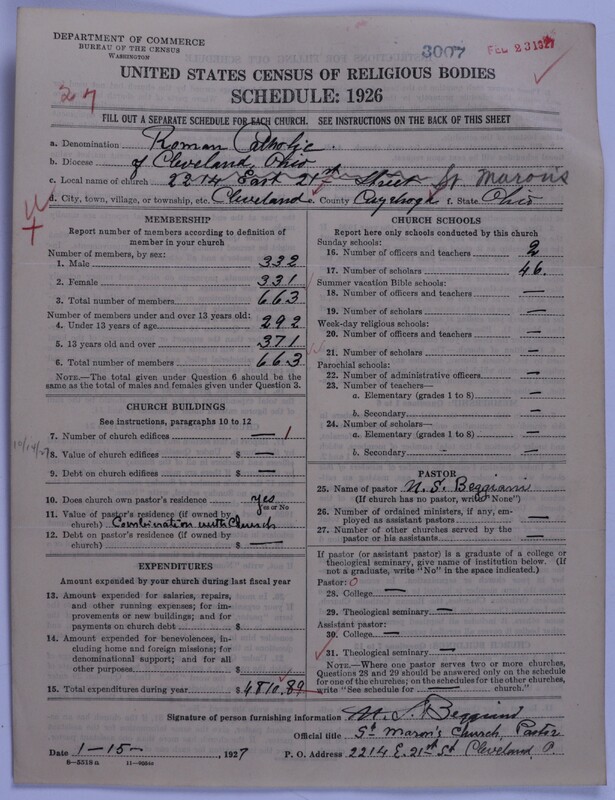 DEPARTMENT OF COMMERCE
BUREAU OF THE CENSUS
WASHINGTON
3007
FEB 23 1927
UNITED STATES CENSUS OF RELIGIOUS BODIES
SCHEDULE: 1926
27
FILL OUT A SEPARATE SCHEDULE FOR EACH CHURCH. SEE INSTRUCTIONS ON THE BACK OF THIS SHEET
a. Denomination Roman Catholic.
b. Diocese of Cleveland, Ohio
c. Local name of church 2214 East 21st Street St Maron's
d. City, town, village, or township, etc. Cleveland e. County Cuyahoga f. State Ohio
MEMBERSHIP
Report number of members according to definition of
member in your church
Number of members, by sex:
1. Male 332
2. Female 331
3. Total number of members 663
Number of members under and over 13 years old:
4. Under 13 years of age 292
5. 13 years old and over 371
6. Total number of members 663
NOTE.—The total given under Question 6 should be
the same as the total of males and females given under Question 3.
CHURCH BUILDINGS
See instructions, paragraphs 10 to 12
7. Number of church edifices — 1
10/14/27
8. Value of church edifices $ —
9. Debt on church edifices $ —
10. Does church own pastor's residence yes
Yes or No
11. Value of pastor's residence (if owned by
church) Combination with Church
12. Debt on pastor's residence (if owned by
church) $ —
EXPENDITURES
Amount expended by your church during last fiscal year
13. Amount expended for salaries, repairs,
and other running expenses; for im-
provements or new buildings; and for
payments on church debt $
14. Amount expended for benevolences, in-
cluding home and foreign missions; for
denominational support; and for all
other purposes $
15. Total expenditures during year $ 4810.89
CHURCH SCHOOLS
Report here only schools conducted by this church
Sunday schools:
16. Number of officers and teachers 2
17. Number of scholars 46.
Summer vacation Bible schools:
18. Number of officers and teachers —
19. Number of scholars —
Week-day religious schools:
20. Number of officers and teachers —
21. Number of scholars —
Parochial schools:
22. Number of administrative officers —
23. Number of teachers—
a. Elementary (grades 1 to 8) —
b. Secondary —
24. Number of scholars—
a. Elementary (grades 1 to 8) —
b. Secondary —
PASTOR
25. Name of pastor N. S. Beggiani
(If church has no pastor, write "None")
26. Number of ordained ministers, if any, em-
ployed as assistant pastors —
27. Number of other churches served by the
pastor or his assistants —
If pastor (or assistant pastor) is a graduate of a college or
theological seminary, give name of institution below. (If
not a graduate, write "No" in the space indicated.)
Pastor: 0
28. College —
29. Theological seminary —
Assistant pastor:
30. College —
31. Theological seminary —
NOTE.—Where one pastor serves two or more churches,
Questions 28 and 29 should be answered only on the schedule
for one of the churches; on the schedules for the other churches,
write "See schedule for — church."
Signature of person furnishing information N. S. Beggiani
Official title St Maron's Church, Pastor
Date 1-15-, 1927 P. O. Address 2214 E. 21st St Cleveland, O.
8—5518a